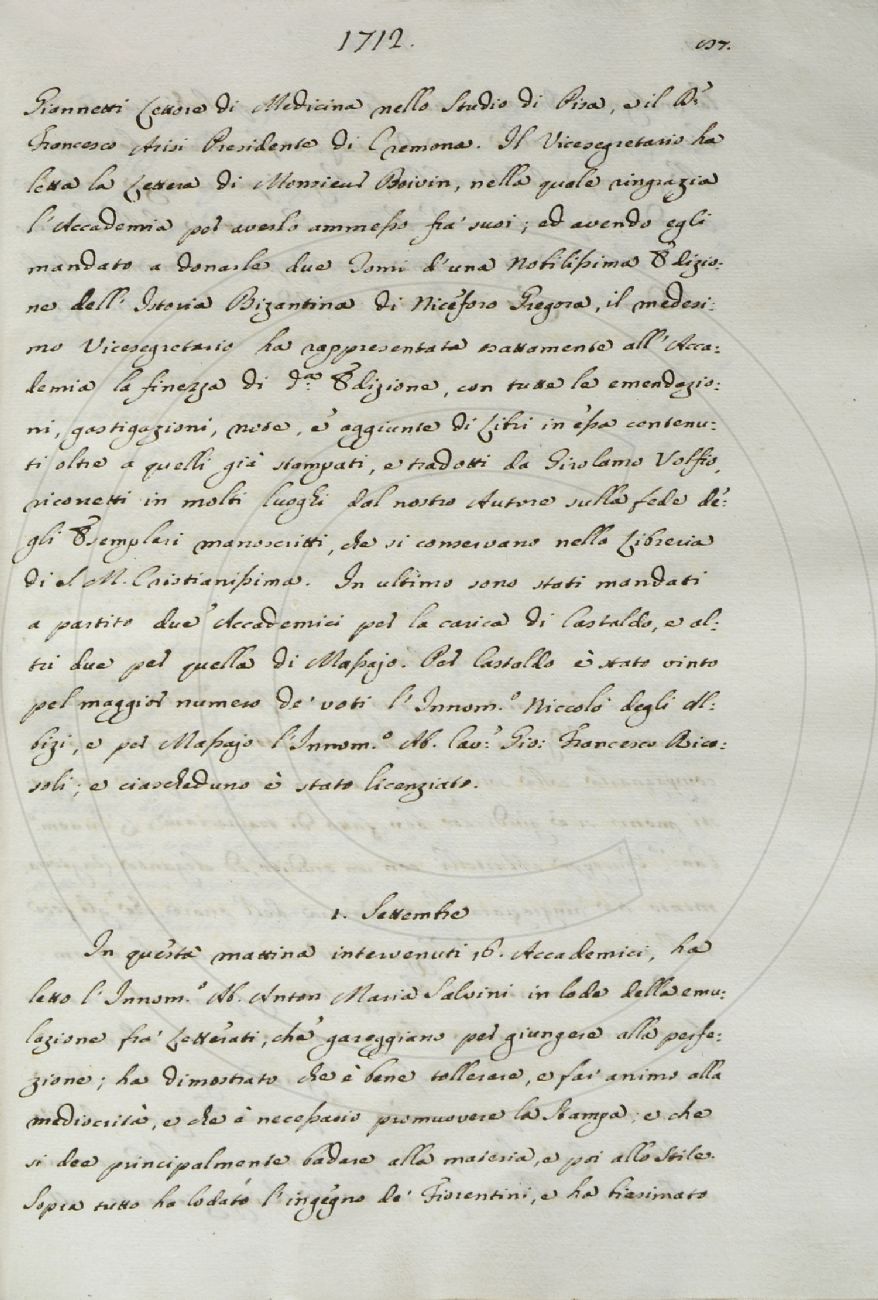 1712. 137.
Giannetti Lettore di Medicina nello Studio di Pisa, e il Dr.
Francesco Arisi Presidente di Cremona. Il Vicesegretario ha
letta la Lettera di Monsieur Boivin, nella quale ringrazia
l'Accademia per averlo ammesso fra' suoi; ed avendo egli
mandato a donarle due Tomi d'una nobilissima Edizio:
ne dell'Istoria Bizantina di Niceforo Gregora, il medesi:
mo Vicesegretario ha rappresentata esattamente all'Acca:
demia la finezza di d.a Edizione, con tutte le emendazio:
ni, gastigazioni, note, e aggiunte di Libri in essa contenu:
ti oltre a quelli già stampati, e tradotti da Girolamo Volfio,
ricorretti in molti luoghi dal nostro Autore sulla fede de:
gli Esemplari manoscritti, che si conservano nella Libreria
di S. M. Cristianissima. In ultimo sono stati mandati
a partito due Accademici per la carica di Castaldo, e al:
tri due per quella di Massajo. Per Castaldo è stato vinto
pel maggior numero de' voti l'Innom.o Niccolò degli Al:
bizi, e per Massajo l'Innom.o Ab. Cav.r Gio: Francesco Rica:
soli; e ciascheduno è stato licenziato.
1. Settembre
In questa mattina intervenuti 16. Accademici, ha
letto l'Innom.o Ab. Anton Maria Salvini in lode della emu:
lazione fra' Letterati, che gareggiano per giungere alla perfe:
zione; ha dimostrato che è bene tollerare, e far animo alla
mediocrità, e che è necessario promuovere la Stampa; e che
si dee principalmente badare alla materia, e poi allo Stile.
Sopra tutto ha lodato l'ingegno de' Fiorentini, e ha biasimato